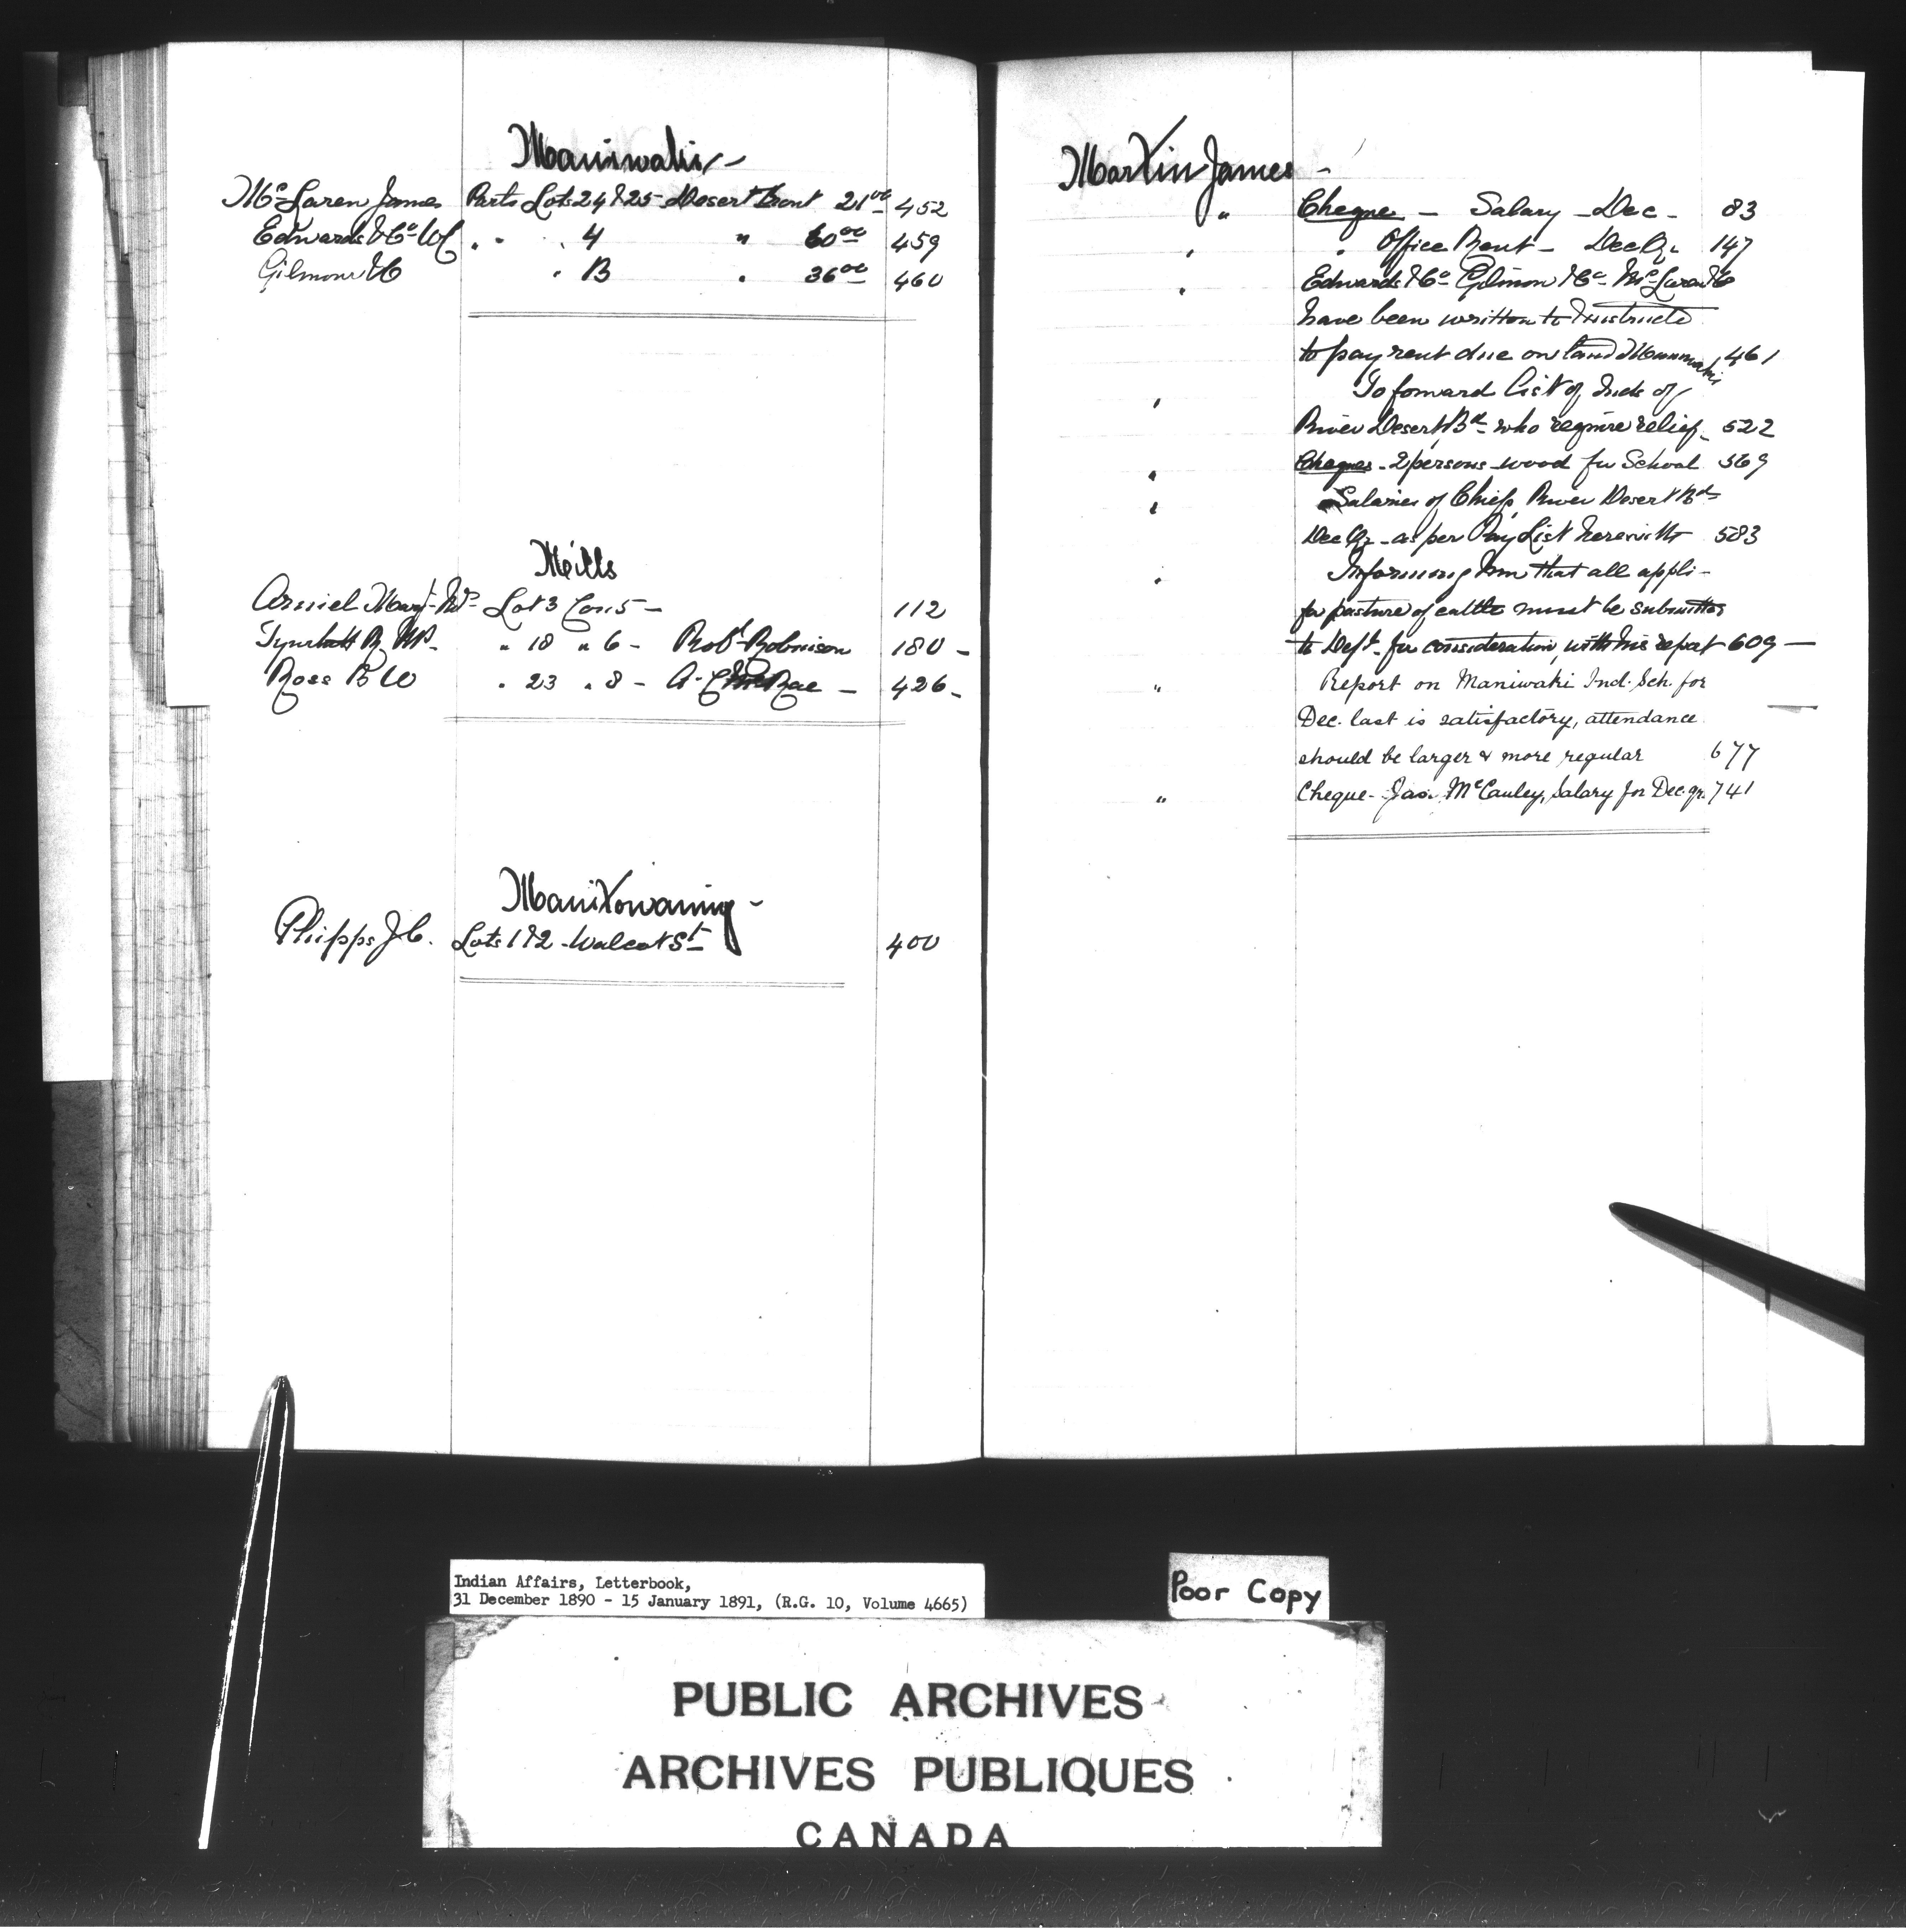 Maniwaki -
McLaren James Parts Lots 24 & 25 - Desert Front 21 00 452
Edwards & Co W C " " " 4 " 60 00 459
Gilmour & C " B " 36 00 460
Mills
Arniel Mary - Lot 3 Con 5 - 112
R. " 18 " 6 - Robt Robinson 180 -
Ross B W " 23 " 8 - A. C. McRae - 426 -
Manitowaning -
Phipps J. C. Lots 1 & 2 - Walcot St 400
Martin James -
" Cheque - Salary - Dec - 83
" " Office Rent - Dec Qr 147
" Edwards & Co Gilmour & Co McLaren & C
have been written to & instructed
to pay rent due on land Maniwaki 461
" To forward List of Inds of
River Desert Bd - who require relief - 522
" Cheques - 2 persons - wood for School 569
" Salaries of Chiefs River Desert Bd
Dec Qr - as per Pay List herewith 583
" Informing him that all appli -
for pasture of cattle must be submitted
to Dept. for consideration, with his report 609 -
" Report on Maniwaki Ind. Sch. for
Dec. last is satisfactory, attendance
should be larger & more regular 677
" Cheque - Jas. McCauley, Salary for Dec. qr. 741
Indian Affairs, Letterbook,
31 December 1890 - 15 January 1891, (R.G. 10, Volume 4665)
Poor Copy
PUBLIC ARCHIVES
ARCHIVES PUBLIQUES
CANADA